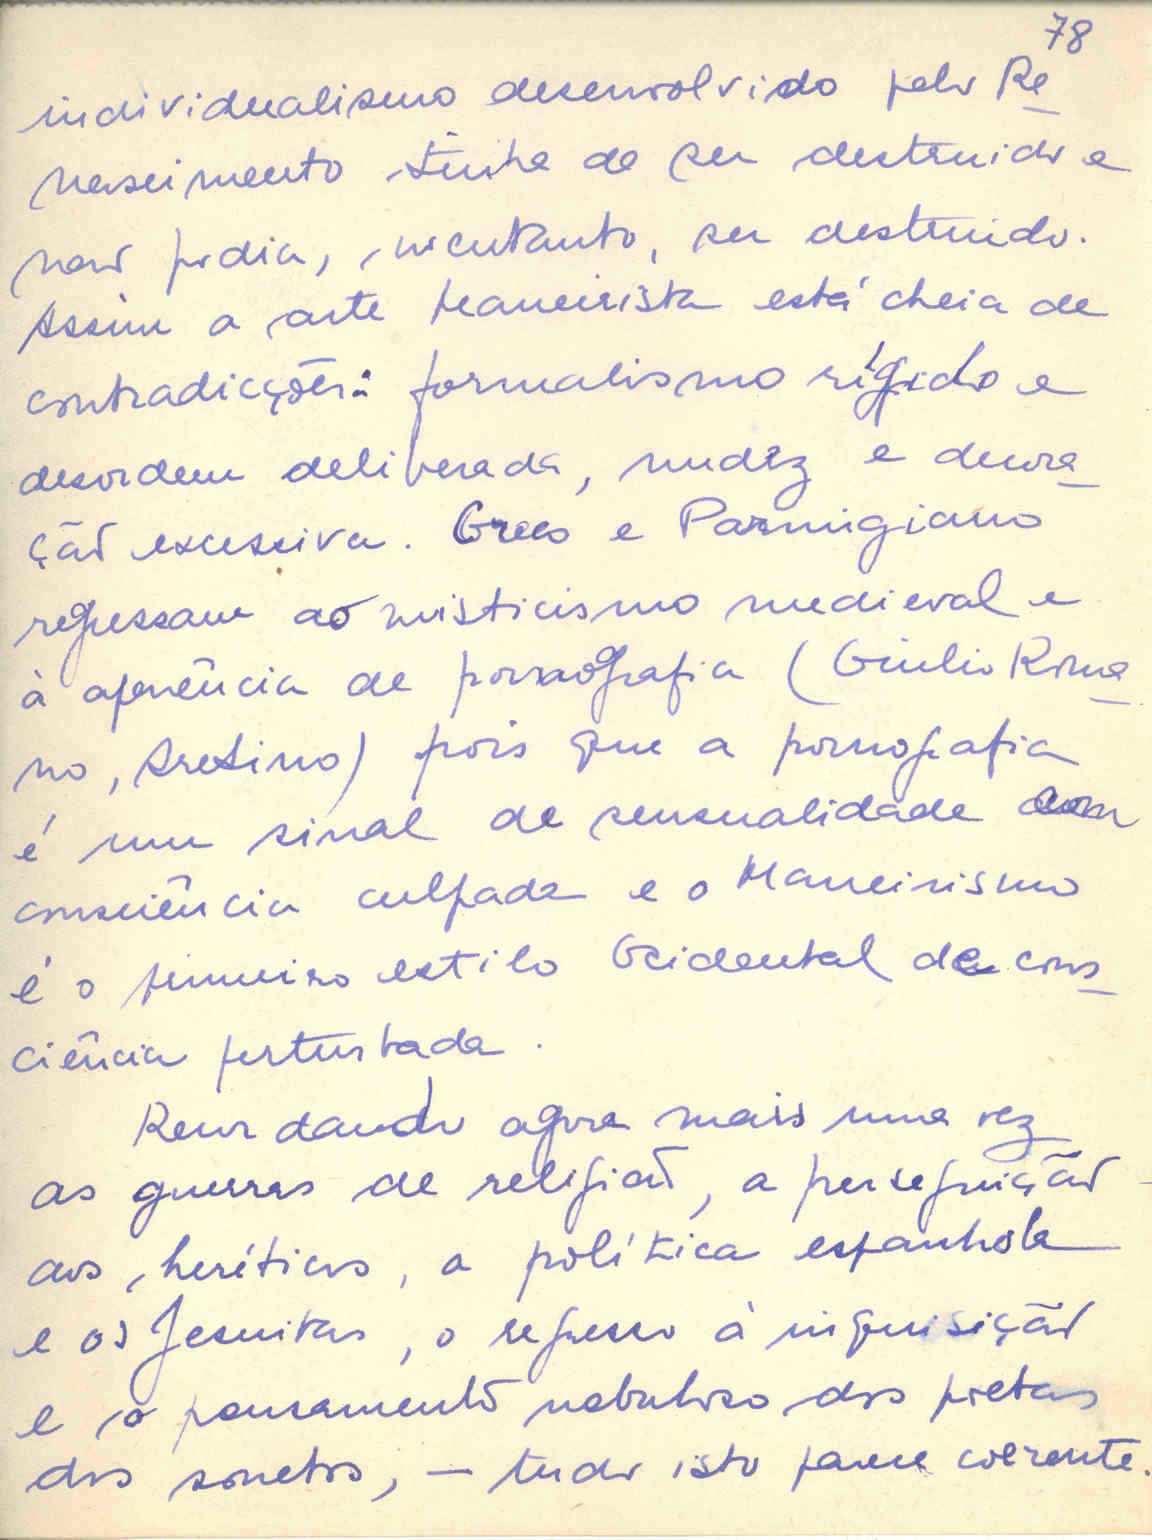 78
individualismo desenvolvido pelo Re_
nascimento tinha de ser destruido e
não podia, no entanto, ser destruido.
Assim a arte Maneirista está cheia de
contradicções: formalismo rígido e
desordem deliberada, nudez e decora_
ção excessiva. Greco e Parmigiano
regressam ao misticismo medieval e
à aparência de pornografia (Giulio Roma_
no, Aretino) pois que a pornografia
é um sinal de sensualidade com
consciência culpada e o Maneirismo
é o primeiro estilo Ocidental de cons_
ciência perturbada.
Recordando agora mais uma vez
as guerras de religião, a perseguição
aos heréticos, a política espanhola
e os Jesuitas, o regresso à inquisição
e o pensamento nebuloso dos poetas
dos sonetos, — tudo isto parece coerente.